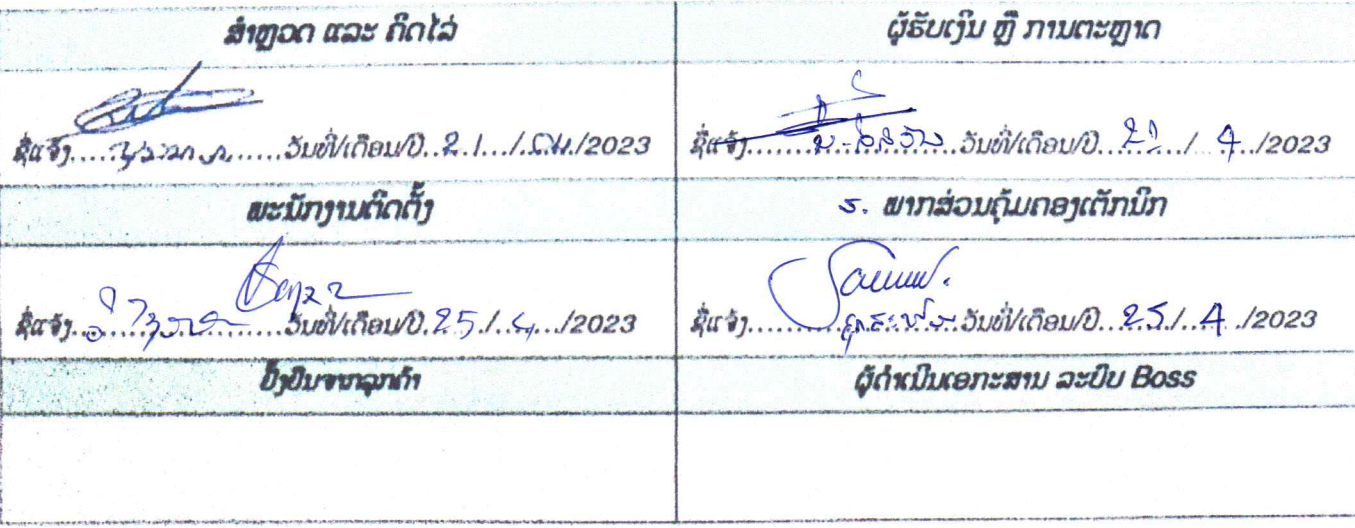 ສຳຫຼວດ ແລະ ຄິດໄລ່
ຜູ້ຮັບເງິນ ຫຼື ການຕະຫຼາດ
ຊື່ແຈ້ງ.....ວັນທີ່/ເດືອນ/ປີ..21.../...04/2023
ຊື່ແຈ້ງ.....ວັນທີ່/ເດືອນ/ປີ...21.../...4.../2023
ພະນັກງານຕິດຕັ້ງ
ຮ. ພາກສ່ວນຄຸ້ມຄອງເຕັກນິກ
ຊື່ແຈ້ງ.....ວັນທີ່/ເດືອນ/ປີ.25./..4.../2023
ຊື່ແຈ້ງ.....ວັນທີ່/ເດືອນ/ປີ...25./..4../2023
ຢັ້ງຢືນຈາກລູກຄ້າ
ຜູ້ດຳເນີນເອກະສານ ລະບົບ Boss